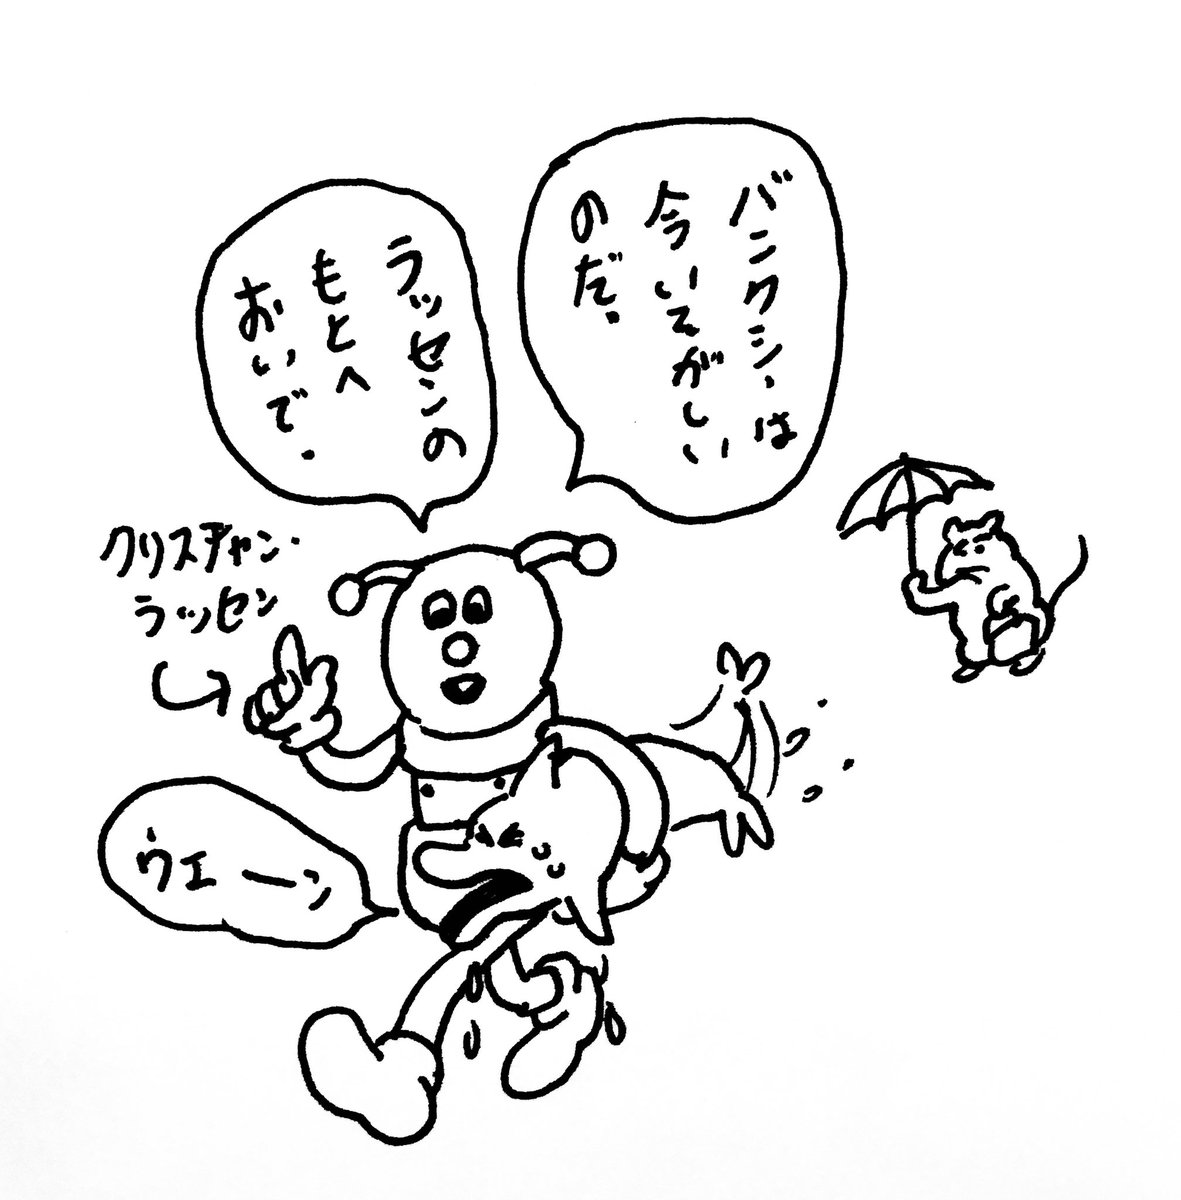 バンクシーは
今いそがしい
のだ。
ラッセンの
もとへ
おいで。
クリスチャン・
ラッセン
ウエーン